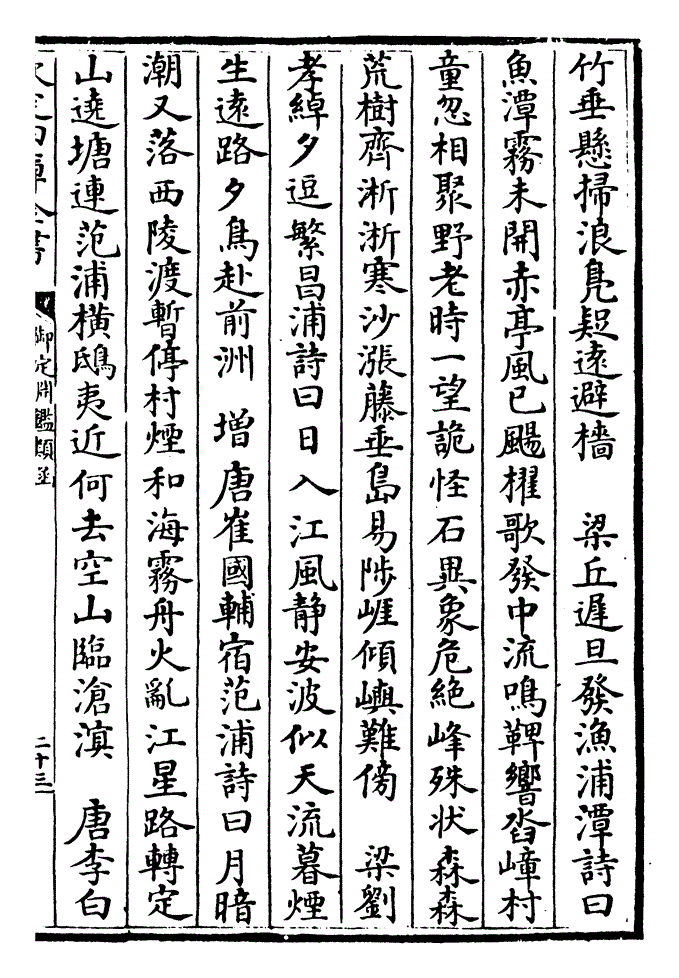 竹垂懸掃浪鳧疑遠避檣　梁丘遲旦發漁浦潭詩曰
魚潭霧未開赤亭風已颺櫂歌發中流鳴鞞響沓嶂村
童忽相聚野老時一望詭怪石異象危絶峰殊狀森森
荒樹齊淅淅寒沙漲藤垂島易陟崕傾嶼難傍　梁劉
孝綽夕逗繁昌浦詩曰日入江風静安波似天流暮煙
生遠路夕鳥赴前洲　增唐崔國輔宿范浦詩曰月暗
潮又落西陵渡暫停村煙和海霧舟火亂江星路轉定
山遶塘連范浦橫鴟夷近何去空山臨滄溟　唐李白
御定淵鑑類函
二十三